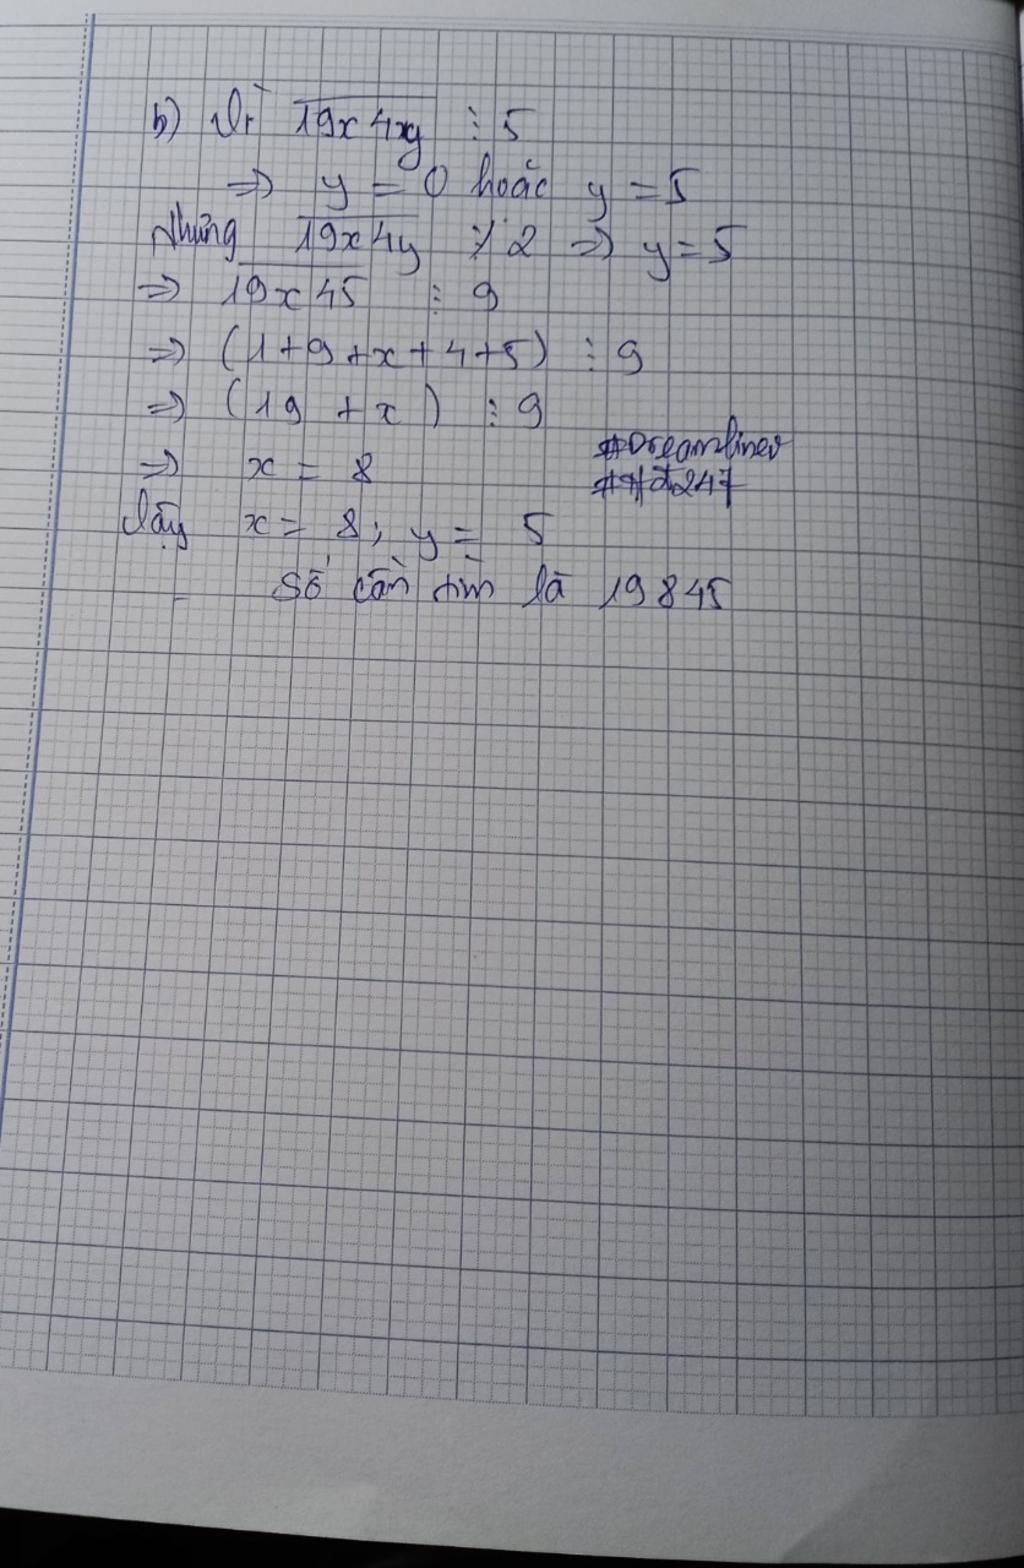 b) Vì 19x4xy ⋮ 5
⇒ y = 0 hoặc y = 5
Nhưng 19x4y ⋮̸ 2 ⇒ y = 5
⇒ 19x45 ⋮ 9
⇒ (1+9+x+4+5) ⋮ 9
⇒ (19 + x) ⋮ 9
#Dreamliner
⇒ x = 8
##đ247
Vậy x = 8; y = 5
Số cần tìm là 19845